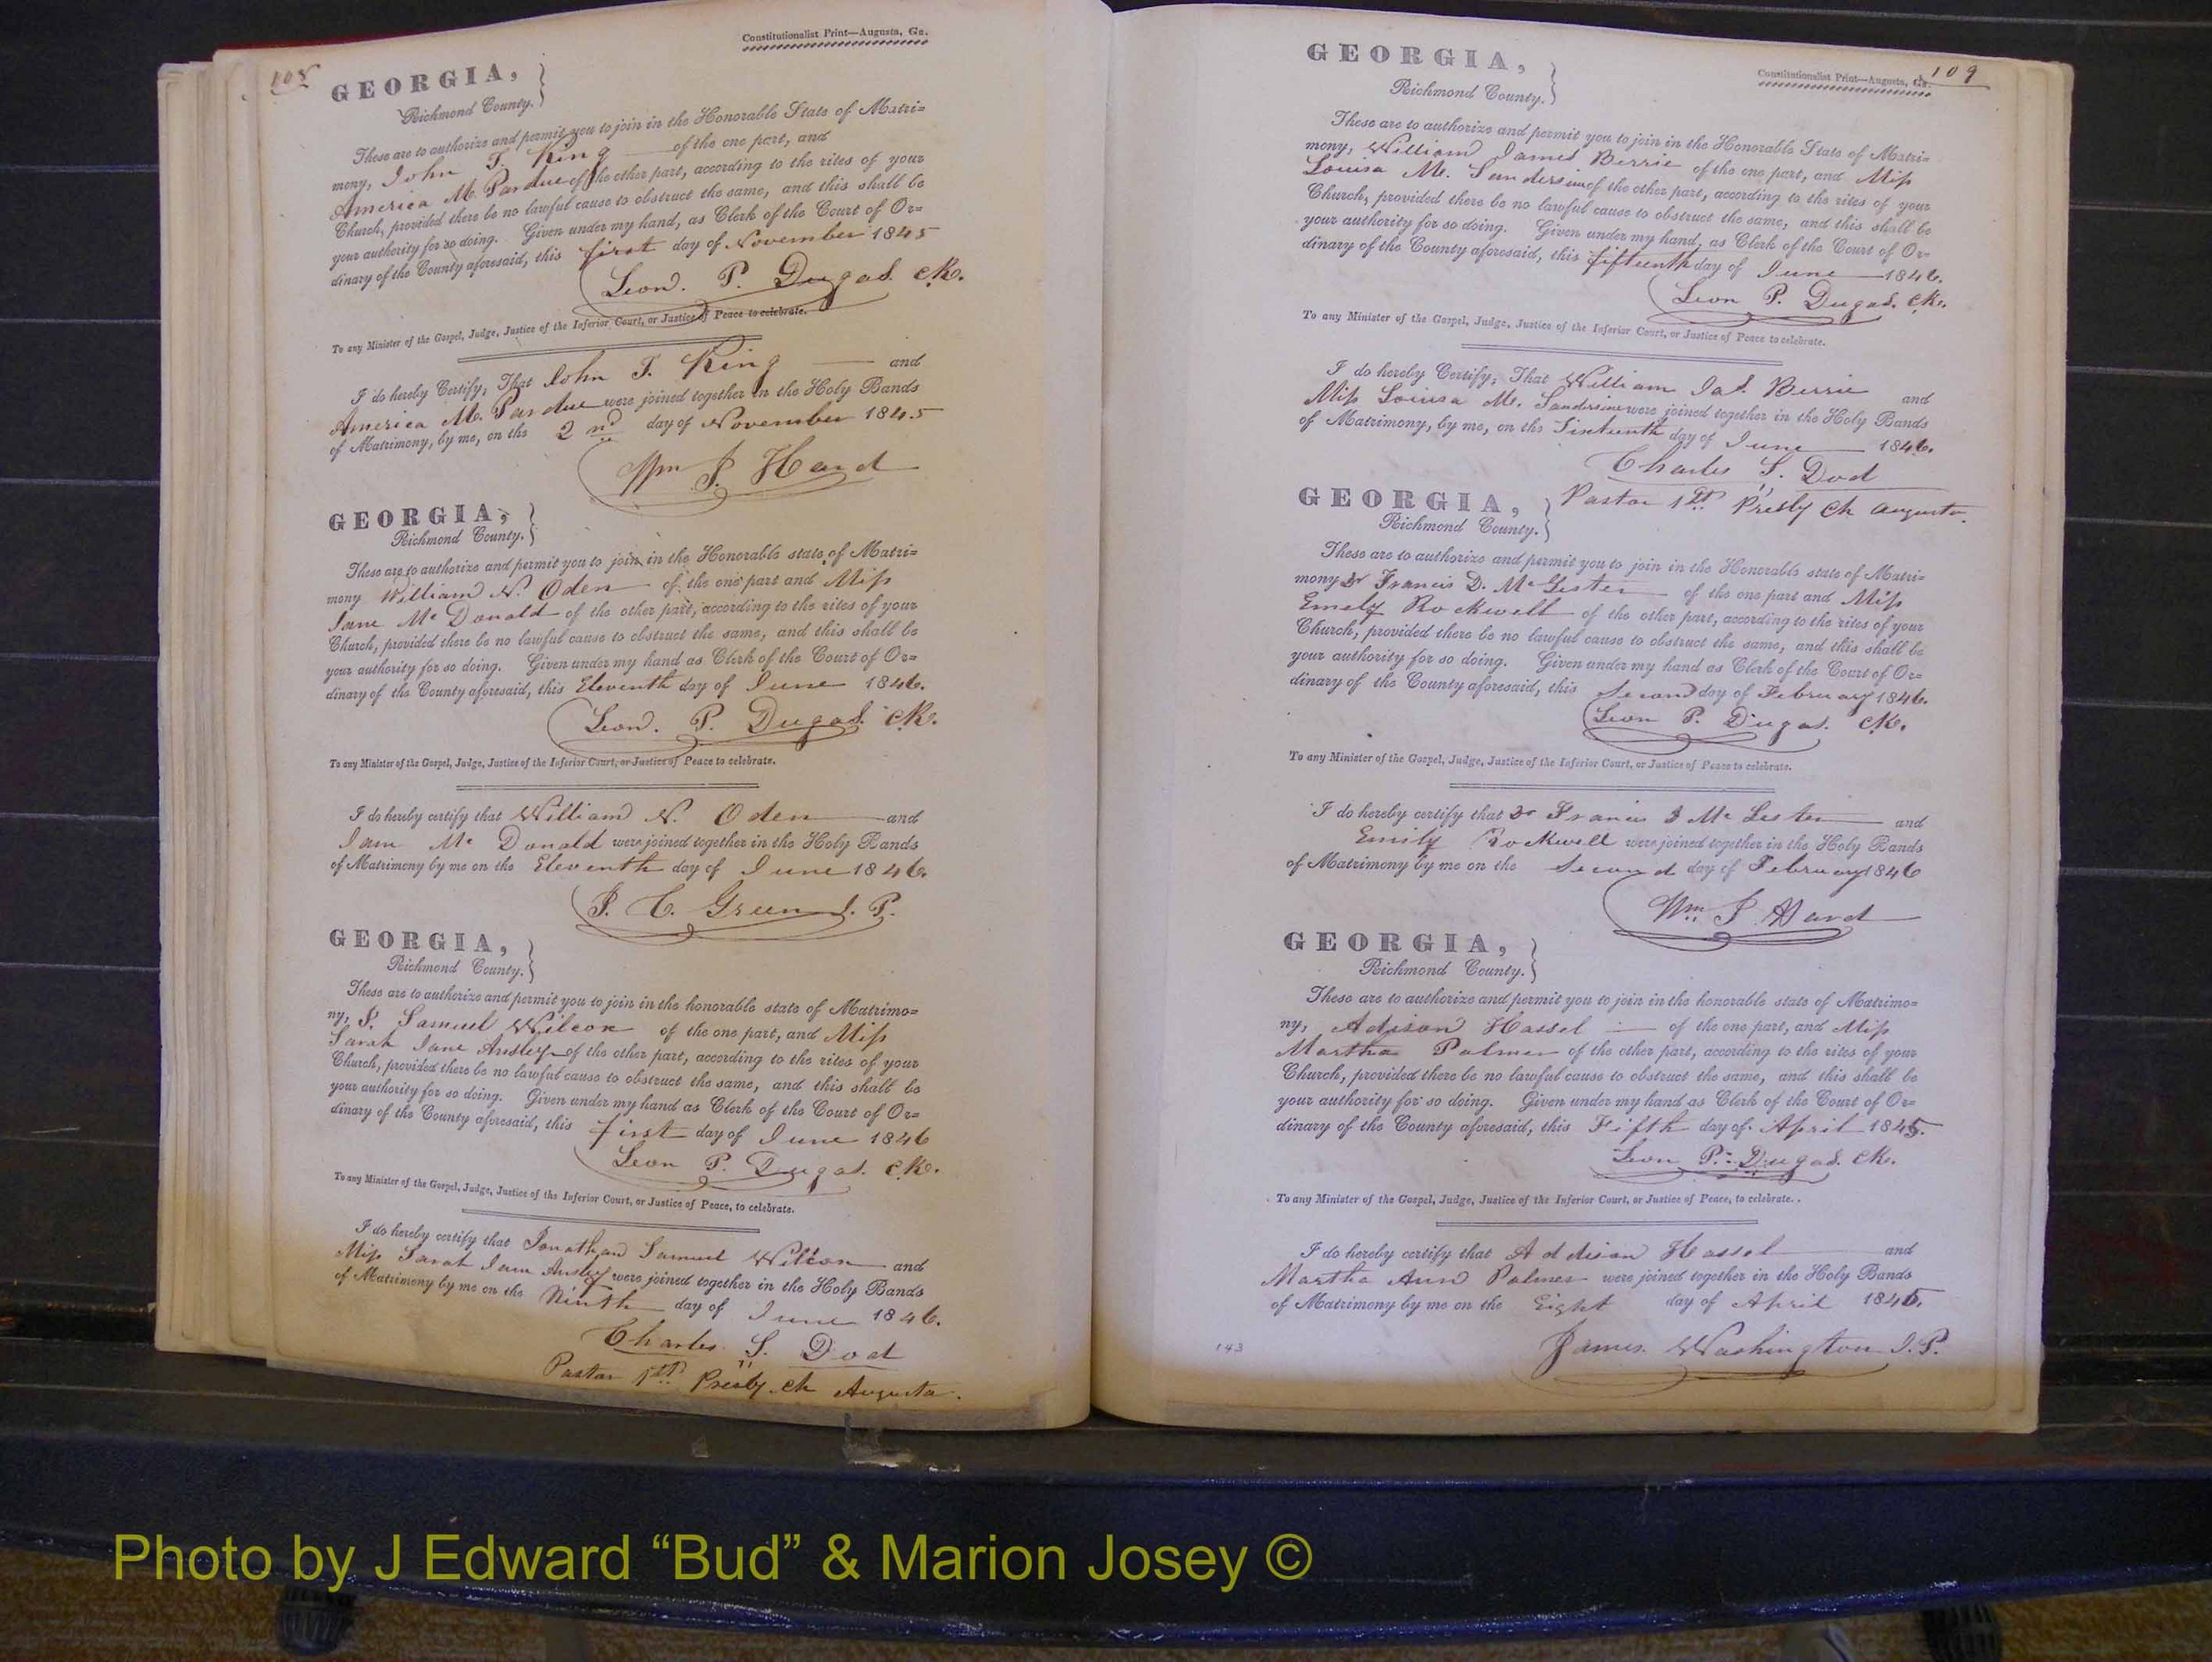 108
Constitutionalist Print—Augusta, Ga.
GEORGIA,
Richmond County.
These are to authorize and permit you to join in the Honorable State of Matri=
mony, John T. King of the one part, and
America M. Pardue of the other part, according to the rites of your
Church, provided there be no lawful cause to obstruct the same, and this shall be
your authority for so doing. Given under my hand, as Clerk of the Court of Or=
dinary of the County aforesaid, this first day of November 1845
Leon. P. Dugas. Clk.
To any Minister of the Gospel, Judge, Justice of the Inferior Court, or Justice of Peace to celebrate.
I do hereby Certify, That John T. King and
America M. Pardue were joined together in the Holy Bands
of Matrimony, by me, on the 2nd day of November 1845
Wm J. Hard
GEORGIA,
Richmond County.
These are to authorize and permit you to join in the Honorable state of Matri=
mony William N. Oden of the one part and Miss
Jane McDonald of the other part, according to the rites of your
Church, provided there be no lawful cause to obstruct the same, and this shall be
your authority for so doing. Given under my hand as Clerk of the Court of Or=
dinary of the County aforesaid, this Eleventh day of June 1846.
Leon. P. Dugas. Clk.
To any Minister of the Gospel, Judge, Justice of the Inferior Court, or Justice of Peace to celebrate.
I do hereby certify that William N. Oden and
Jane McDonald were joined together in the Holy Bands
of Matrimony by me on the Eleventh day of June 1846.
J. C. Green J. P.
GEORGIA,
Richmond County.
These are to authorize and permit you to join in the honorable state of Matrimo=
ny, J. Samuel Wilcox of the one part, and Miss
Sarah Jane Ansley of the other part, according to the rites of your
Church, provided there be no lawful cause to obstruct the same, and this shall be
your authority for so doing. Given under my hand as Clerk of the Court of Or=
dinary of the County aforesaid, this first day of June 1846
Leon P. Dugas. Clk.
To any Minister of the Gospel, Judge, Justice of the Inferior Court, or Justice of Peace, to celebrate.
I do hereby certify that Jonathan Samuel Wilcox and
Miss Sarah Jane Ansley were joined together in the Holy Bands
of Matrimony by me on the Ninth day of June 1846.
Charles S. Dod
Pastor 1st Presby. Ch Augusta.
109
Constitutionalist Print—Augusta, Ga.
GEORGIA,
Richmond County.
These are to authorize and permit you to join in the Honorable State of Matri=
mony, William James Berrie of the one part, and Miss
Louisa M. of the other part, according to the rites of your
Church, provided there be no lawful cause to obstruct the same, and this shall be
your authority for so doing. Given under my hand, as Clerk of the Court of Or=
dinary of the County aforesaid, this fifteenth day of June 1846.
Leon P. Dugas. Clk.
To any Minister of the Gospel, Judge, Justice of the Inferior Court, or Justice of Peace to celebrate.
I do hereby Certify, That William Jas. Berrie and
Miss Louisa M. were joined together in the Holy Bands
of Matrimony, by me, on the Sixteenth day of June 1846.
Charles S. Dod
Pastor 1st Presby Ch Augusta.
GEORGIA,
Richmond County.
These are to authorize and permit you to join in the Honorable state of Matri=
mony Dr Francis D. McLester of the one part and Miss
Emely Rockwell of the other part, according to the rites of your
Church, provided there be no lawful cause to obstruct the same, and this shall be
your authority for so doing. Given under my hand as Clerk of the Court of Or=
dinary of the County aforesaid, this Second day of February 1846.
Leon P. Dugas. Clk.
To any Minister of the Gospel, Judge, Justice of the Inferior Court, or Justice of Peace to celebrate.
I do hereby certify that Dr Francis McLester and
Emily Rockwell were joined together in the Holy Bands
of Matrimony by me on the Second day of February 1846
Wm J. Hard
GEORGIA,
Richmond County.
These are to authorize and permit you to join in the honorable state of Matrimo=
ny, Adison Hassel of the one part, and Miss
Martha Palmer of the other part, according to the rites of your
Church, provided there be no lawful cause to obstruct the same, and this shall be
your authority for so doing. Given under my hand as Clerk of the Court of Or=
dinary of the County aforesaid, this Fifth day of April 1845.
Leon P. Dugas. Clk.
To any Minister of the Gospel, Judge, Justice of the Inferior Court, or Justice of Peace, to celebrate.
I do hereby certify that Addison Hassel and
Martha Ann Palmer were joined together in the Holy Bands
of Matrimony by me on the Eight day of April 1845.
James. Washington J.P.
143
Photo by J Edward “Bud” & Marion Josey ©